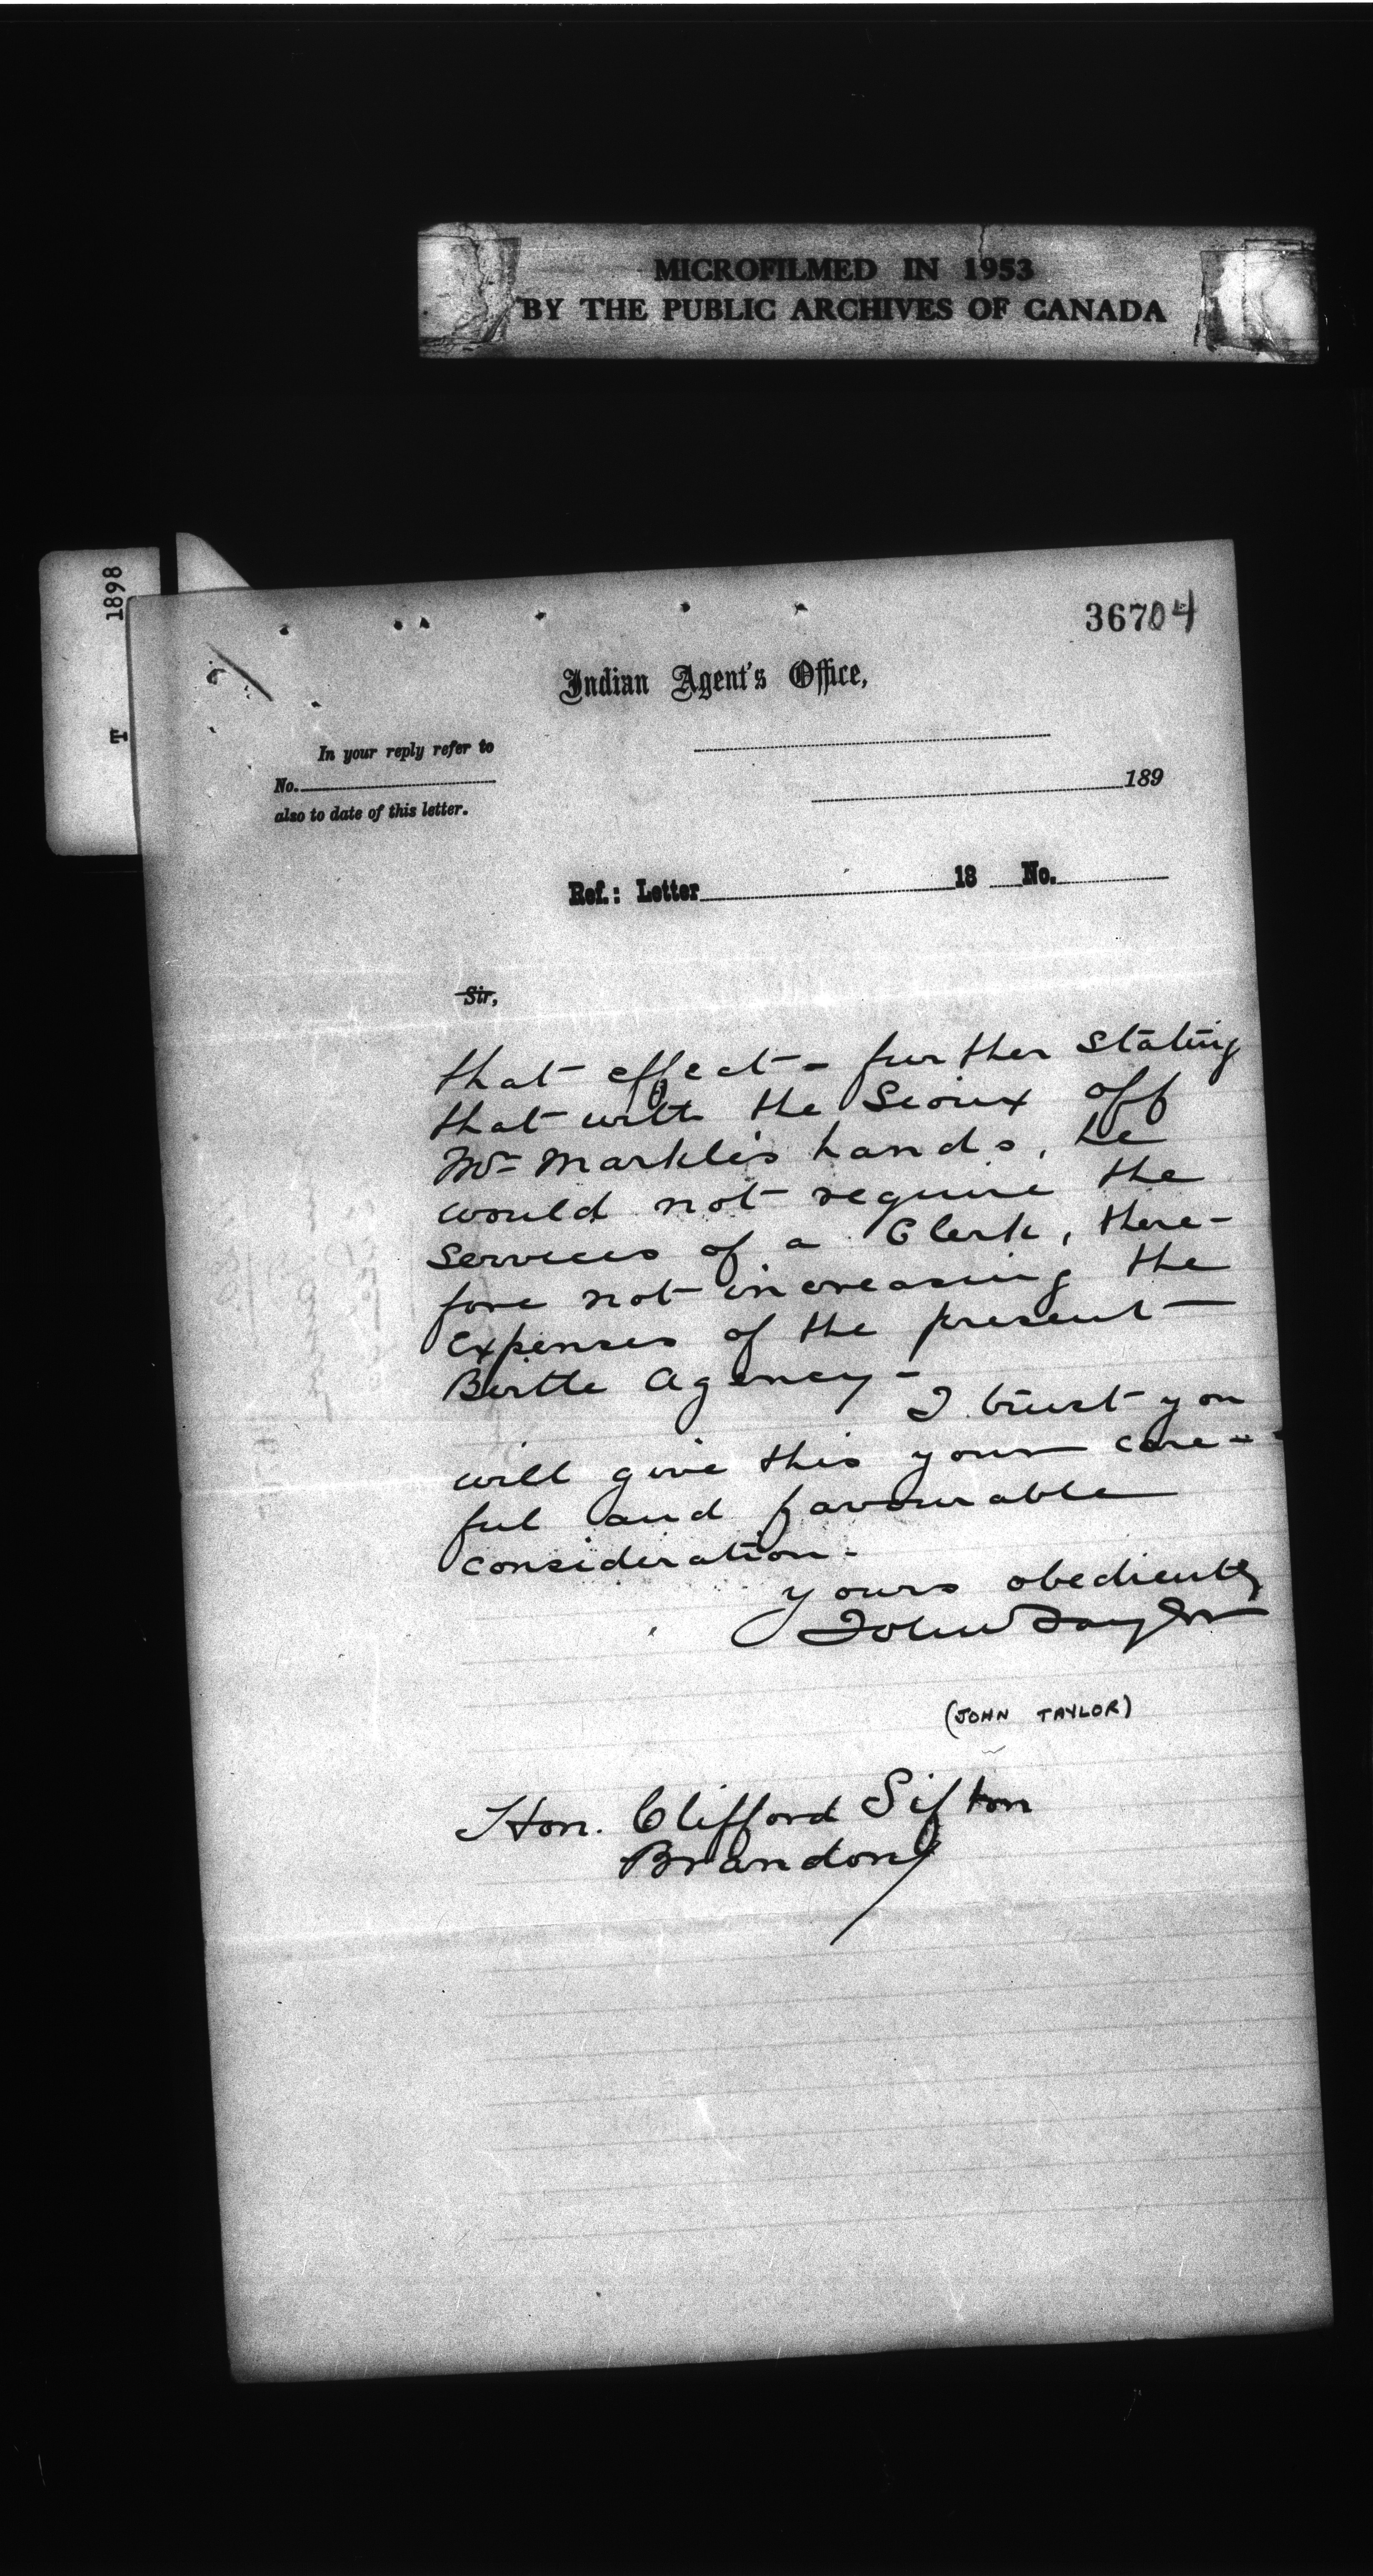 MICROFILMED IN 1953
BY THE PUBLIC ARCHIVES OF CANADA
T 1898
36704
Indian Agent's Office,
In your reply refer to
No.
also to date of this letter.
189
Ref.: Letter 18 No.
Sir,
that effect - further stating
that with the Sioux off
Mr Markle's hands, he
would not require the
services of a Clerk, there-
fore not increasing the
Expenses of the present
Birtle Agency -
I trust you
will give this your care-
ful and favourable
consideration.
yours obediently
John Taylor
(JOHN TAYLOR)
Hon. Clifford Sifton
Brandon